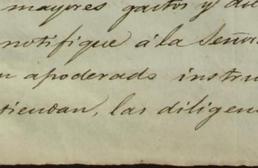 mayores gastos y di
notifique á la Seño
n apoderado instru
tiendan, las diligen